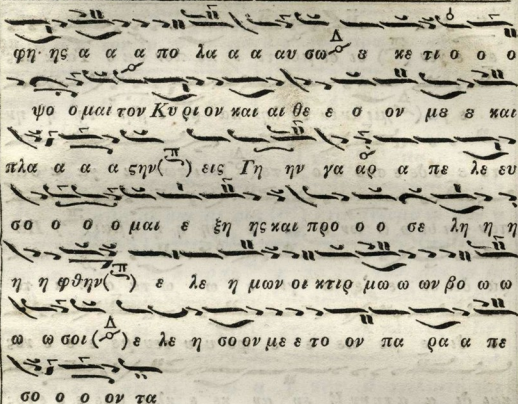 φη· ης α α α πο λα α α αυ σω ȣ κε τι ο ο ο
ψο ο μαι τον Κυ ρι ον και αι θε ε ο ον μȣ ȣ και
πλα α α α ςην( π ) εις Γη ην γα αρ α πε λε ευ
σο ο ο ο μαι ε ξη ης και προ ο ο σε λη η η
η η φθην( π ) ε λε η μων οι κτιρ μω ω ων βο ω ω
ω ω σοι( Δ ) ε λε η σο ον με ε το ον πα ρα α πε
σο ο ο ον τα